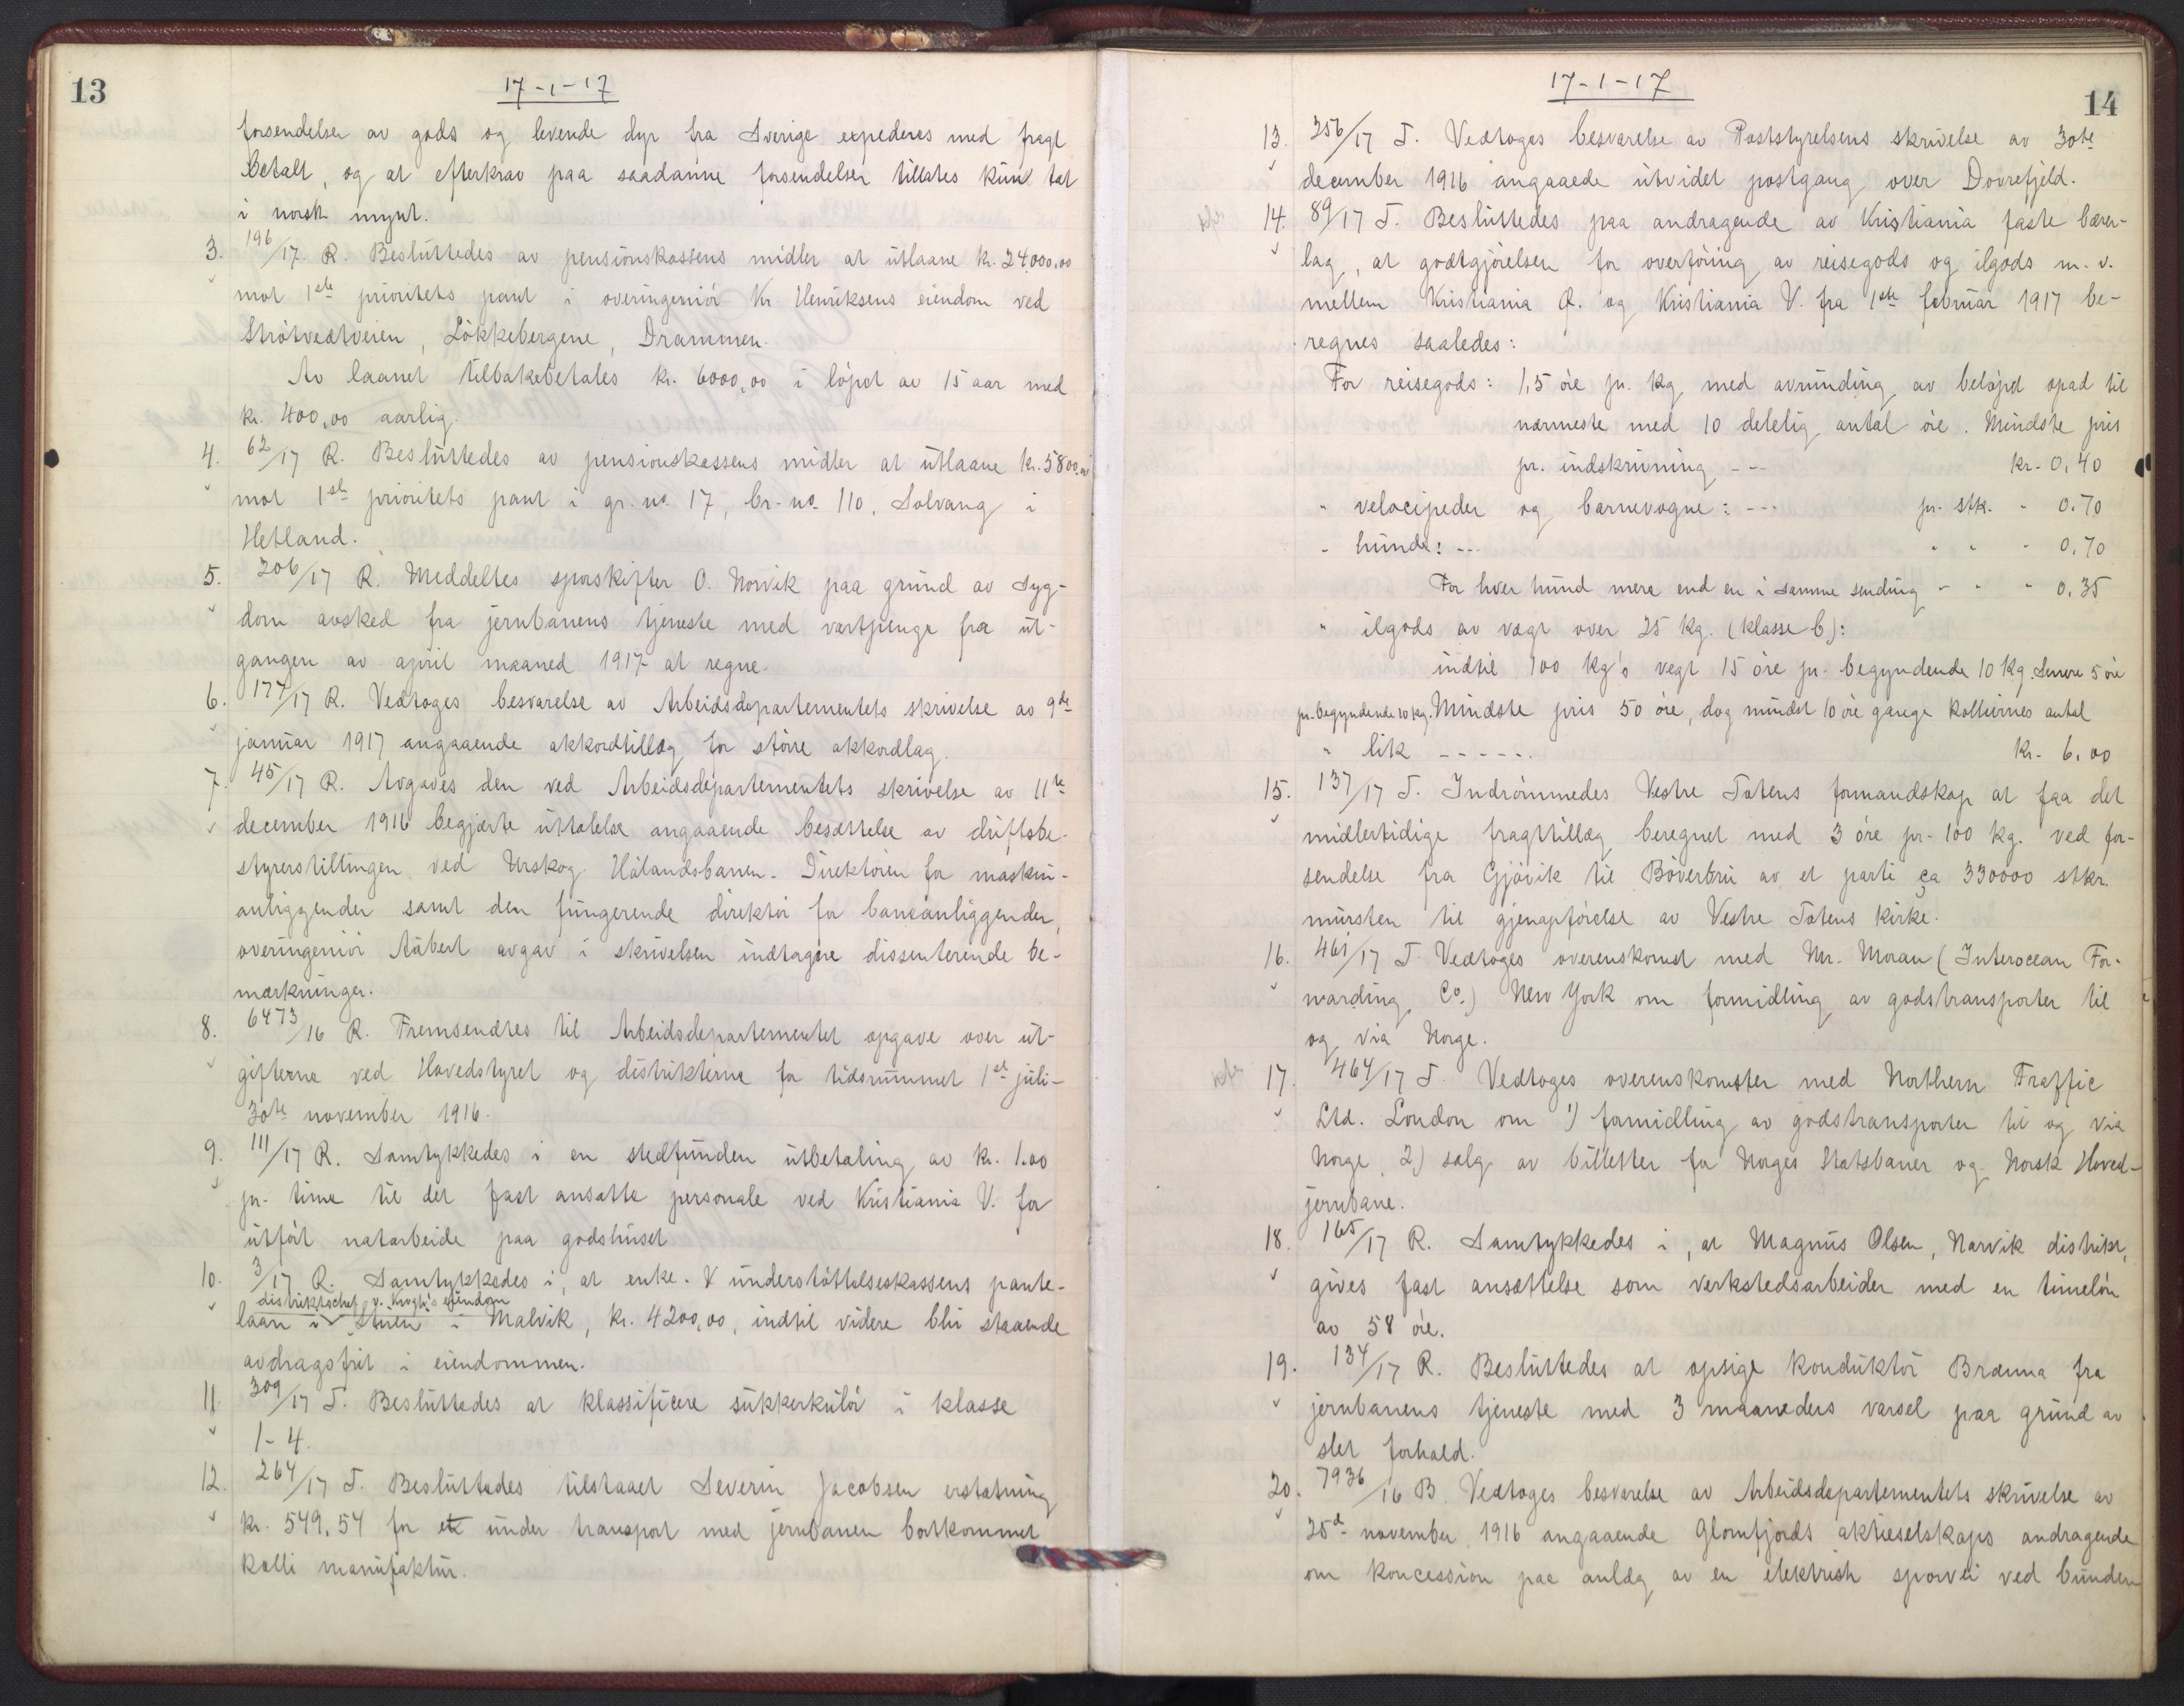 13
17-1-17
forsendelser av gods og levende dyr fra Sverige expederes med fragt
betalt, og at efterkrav paa saadanne forsendelser tillates kun tat
i norsk mynt.
3. 196/17 R. Besluttedes av pensionskassens midler at utlaane kr. 24000,00
mot 1ste prioritets pant i overingeniör Kr Henriksens eiendom ved
Strötvedtveien, Lökkebergene, Drammen.
Av laanet tilbakebetales kr. 6000,00 i löpet av 15 aar med
kr. 400,00 aarlig.
4. 62/17 R. Besluttedes av pensionskassens midler at utlaane kr. 5800,00
mot 1ste prioritets pant i gr. no. 17, br. no. 110, Solvang i
Hetland.
5. 206/17 R. Meddeltes sporskifter O. Norvik paa grund av syg-
dom avsked fra jernbanens tjeneste med vartpenge fra ut-
gangen av april maaned 1917 at regne.
6. 174/17 R. Vedtoges besvarelse av Arbeidsdepartementets skrivelse av 9de
januar 1917 angaaende akkordtillæg for större akkordlag.
7. 45/17 R. Avgaves den ved Arbeidsdepartementets skrivelse av 11te
december 1916 begjærte uttalelse angaaende besættelse av driftsbe-
styrerstillingen ved Urskog Hölandsbanen. Direktören for maskin-
anliggender samt den fungerende direktör for baneanliggender,
overingeniör Aabert avgav i skrivelsen indtagne dissenterende be-
merkninger.
8. 6473/16 R. Fremsendtes til Arbeidsdepartementet opgave over ut-
gifterne ved Hovedstyret og distrikterne for tidsrummet 1st juli-
30te november 1916.
9. 111/17 R. Samtykkedes i en stedfunden utbetaling av kr. 1.00
pr. time til det fast ansatte personale ved Kristiania V. for
utfört natarbeide paa godshuset
10. 3/17 R. Samtykkedes i, at enke- & understöttelseskassens pante-
distriktschef v. Krogh's eiendom
laan i "Stuen" i Malvik, kr. 4200,00, indtil videre blir staaende
avdragsfrit i eiendommen.
11. 309/17 T. Besluttedes at klassificere sukkerkulör i klasse
1-4.
12. 264/17 T. Besluttedes tilstaaet Severin Jacobsen erstatning
kr. 549,54 for et under transport med jernbanen bortkommet
kolli manufaktur.
14
17-1-17
13. 256/17 T. Vedtoges besvarelse av Poststyrelsens skrivelse av 30te
december 1916 angaaede utvidet postgang over Dovrefjeld.
14. 89/17 T. Besluttedes paa andragende av Kristiania faste bærer-
lag, at godtgjörelsen for overföring av reisegods og ilgods m. v.
mellem Kristiania Ø. og Kristiania V. fra 1ste februar 1917 be-
regnes saaledes:
For reisegods: 1,5 öre pr. kg. med avrunding av belöpet opad til
nærmeste med 10 delelig antal öre. Mindste pris
pr. indskrivning --- kr. 0,40
" velocipeder og barnevogne: --- pr. stk. " 0,70
" hunde: --- " " " 0,70
For hver hund mere end en i samme sending " " " 0,35
" ilgods av vægt over 25 kg. (klasse b):
indtil 100 kg's vegt 15 öre pr. begyndende 10 kg. Senere 5 öre
pr. begyndende 10 kg. Mindste pris 50 öre, dog mindst 10 öre gange kolliernes antal
" lik ------ kr. 6,00
15. 137/17 T. Indrömmedes Vestre Totens formandskap at faa det
midlertidige fragttillæg beregnet med 3 öre pr. 100 kg. ved for-
sendelse fra Gjövik til Böverbru av et parti ca 330000 stkr.
mursten til gjenopförelse av Vestre Totens kirke.
16. 461/17 T. Vedtoges overenskomst med Mr. Moran (Interocean For-
warding Co.) New York om formidling av godstransporter til
og via Norge.
17. 464/17 T. Vedtoges overenskomster med Northern Traffic
Ltd. London om 1) formidling av godstransporter til og via
Norge, 2) salg av billetter for Norges Statsbaner og Norsk Hoved-
jernbane.
18. 165/17 R. Samtykkedes i, at Magnus Olsen, Narvik distrikt,
gives fast ansættelse som verkstedsarbeider med en timelön
av 58 öre.
19. 134/17 R. Besluttedes at opsige konduktör Brænna fra
jernbanens tjeneste med 3 maaneders varsel paa grund av
slet forhold.
20. 7936/16 B. Vedtoges besvarelse av Arbeidsdepartementets skrivelse av
25d. november 1916 angaaende Glomfjords aktieselskaps andragende
om koncession paa anlæg av en elektrisk sporvei ved bunden